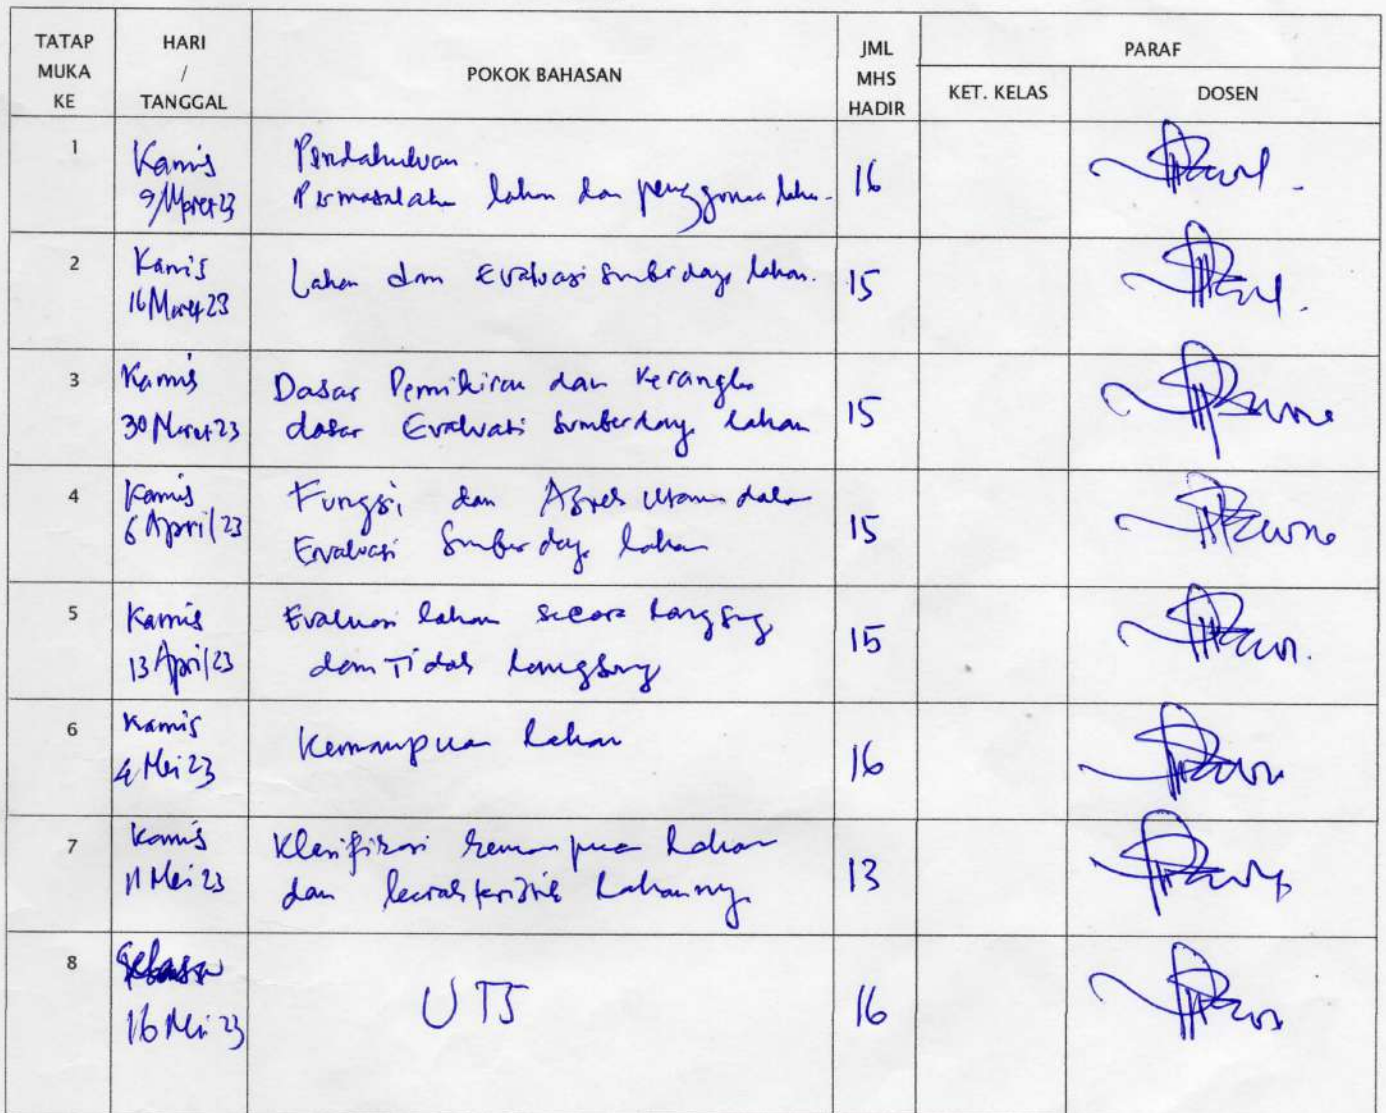 TATAP MUKA KE
HARI / TANGGAL
POKOK BAHASAN
JML MHS HADIR
PARAF
KET. KELAS
DOSEN
1
Kamis
9/Maret 23
Pendahuluan
Permasalahan lahan dan penggunaan lahan.
16
2
Kamis
16 Maret 23
Lahan dan Evaluasi Sumberdaya lahan.
15
3
Kamis
30 Maret 23
Dasar Pemikiran dan Kerangka
dasar Evaluasi Sumberdaya Lahan
15
4
Kamis
6 April 23
Fungsi dan Aspek Utama dalam
Evaluasi Sumberdaya lahan
15
5
Kamis
13 April 23
Evaluasi lahan secara langsung
dan Tidak langsung
15
6
Kamis
4 Mei 23
Kemampuan lahan
16
7
Kamis
11 Mei 23
Klasifikasi kemampuan lahan
dan karakteristik lahannya
13
8
Selasa
16 Mei 23
UTS
16